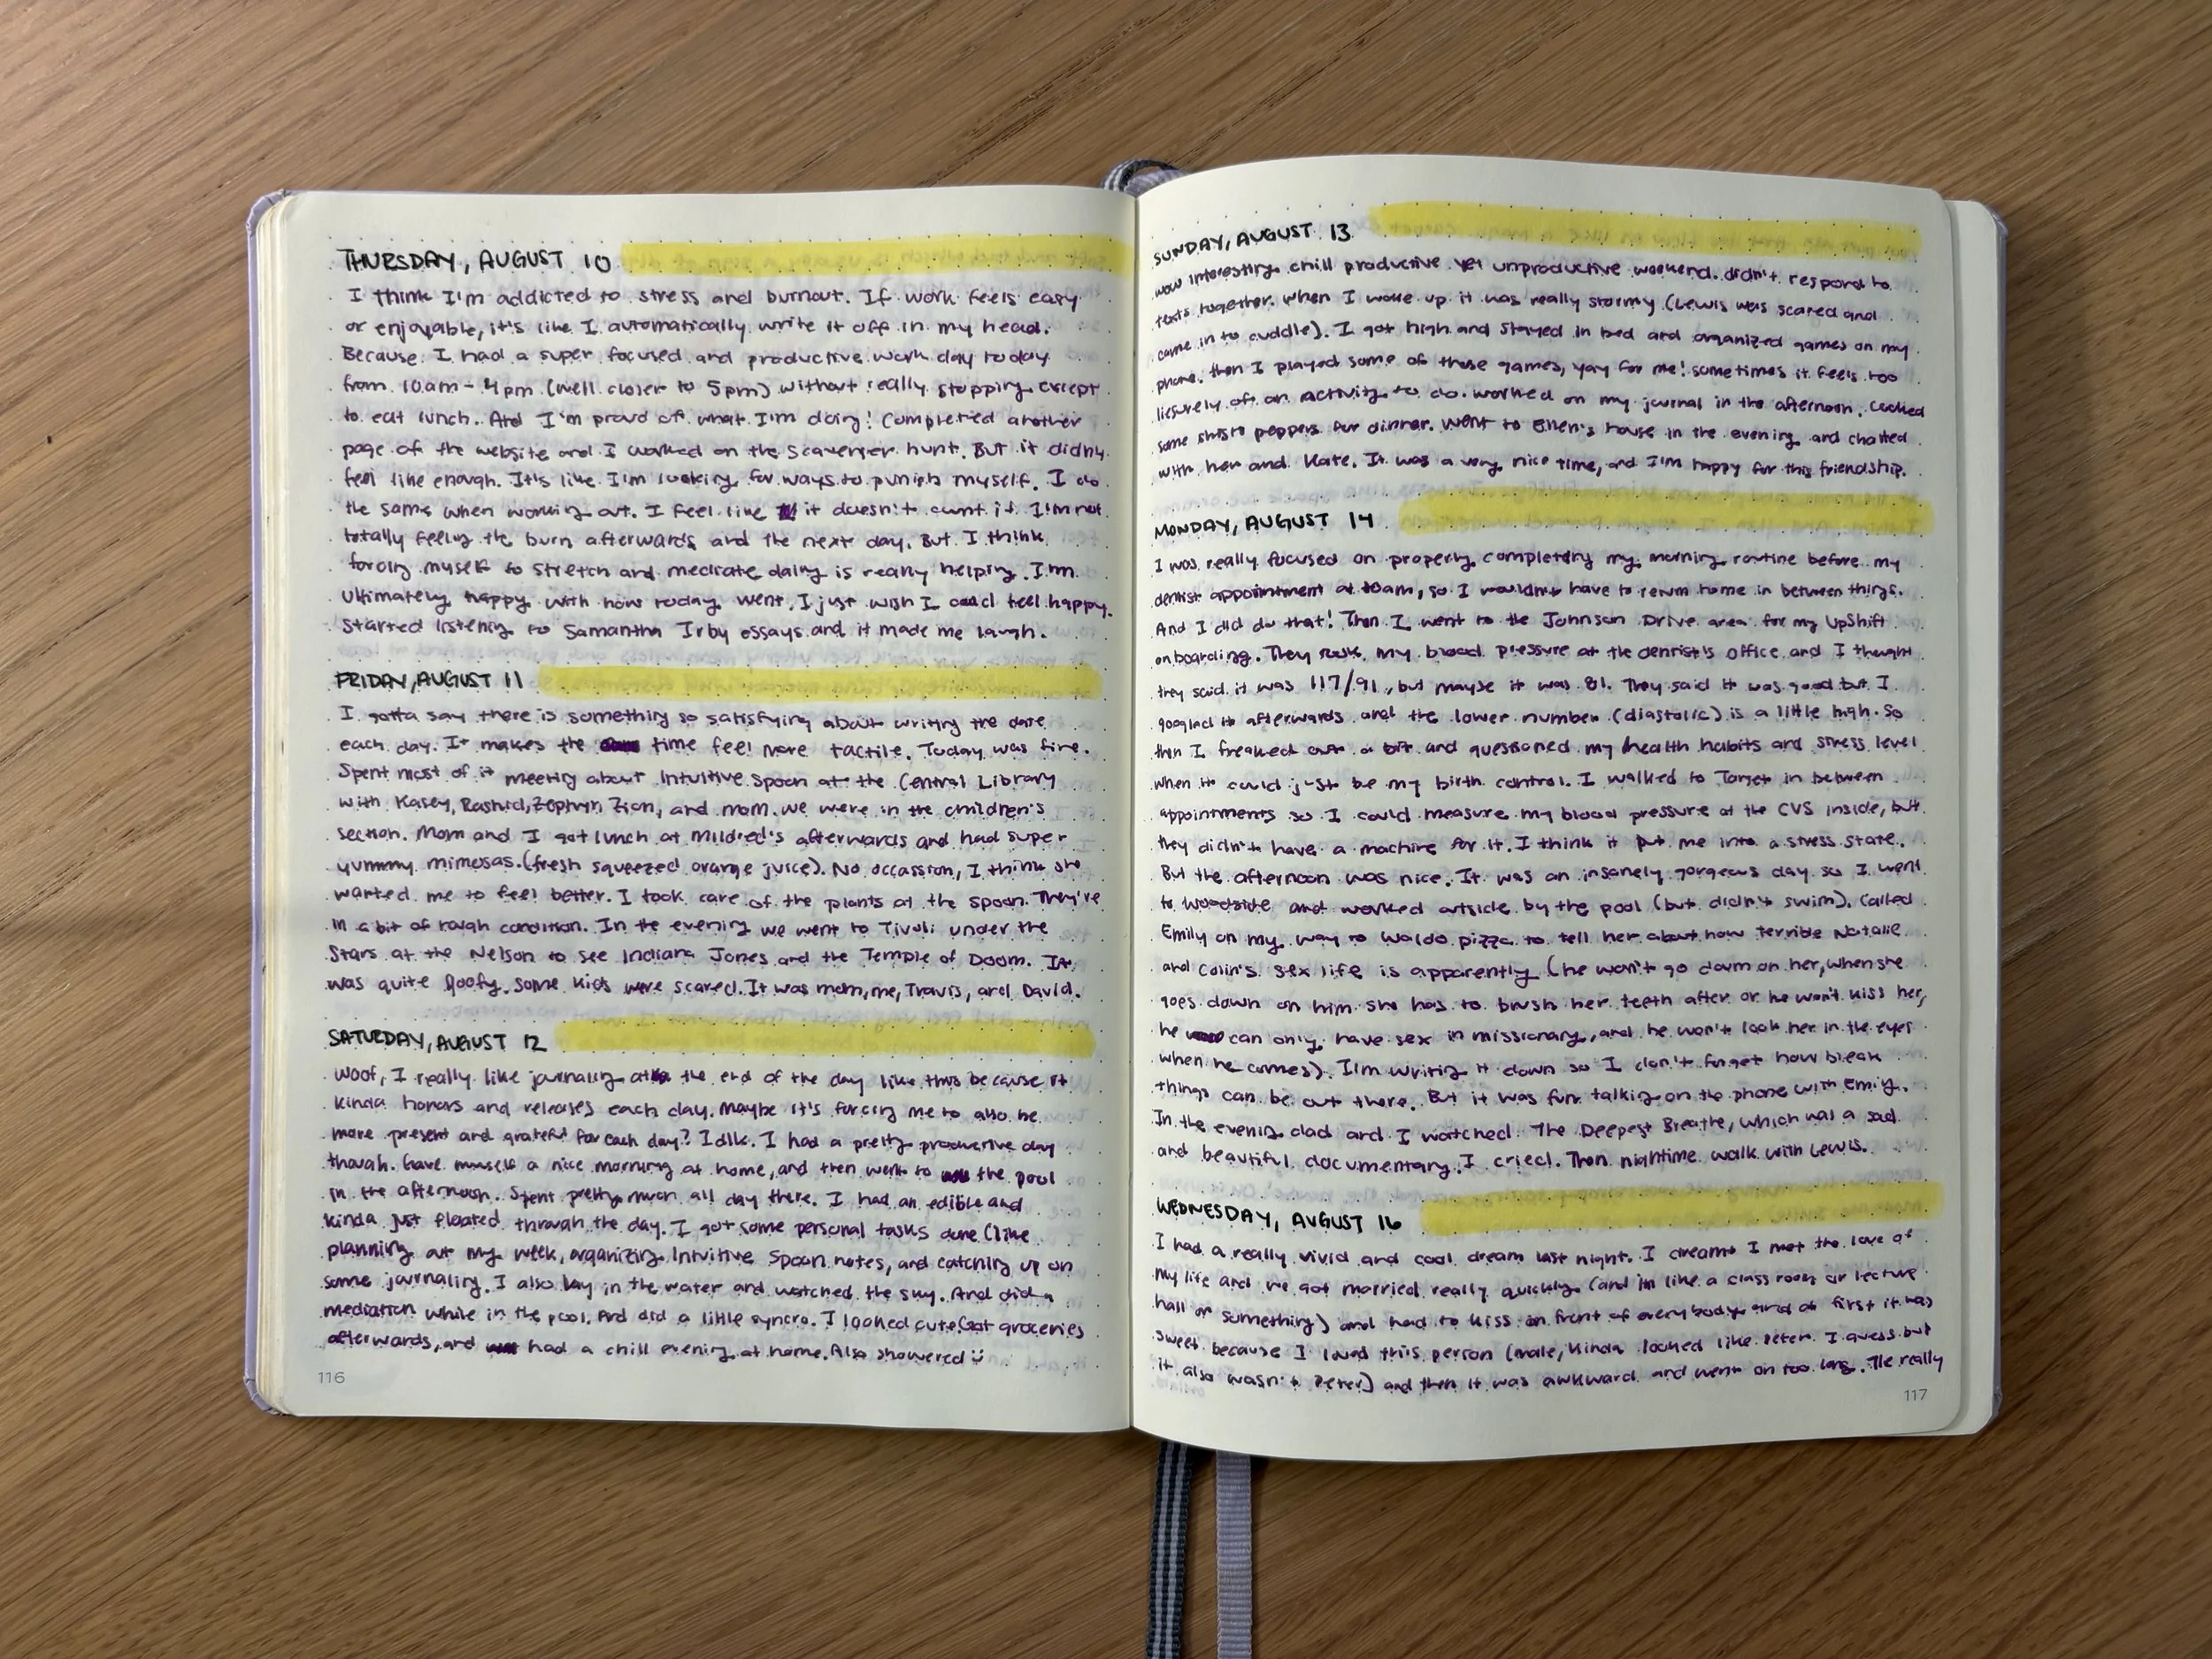 THURSDAY, AUGUST 10
I think I'm addicted to stress and burnout. If work feels easy
or enjoyable, it's like I automatically write it off in my head.
Because I had a super focused and productive work day today
from 10am-4pm (well closer to 5pm) without really stopping except
to eat lunch. And I'm proud of what I'm doing! Completed another
page of the website and I worked on the scavenger hunt. But it didn't
feel like enough. It's like I'm looking for ways to punish myself. I do
the same when working out. I feel like it doesn't count if I'm not
totally feeling the burn afterwards and the next day. But I think
forcing myself to stretch and medicate daily is really helping. I'm
ultimately happy with how today went, I just wish I could feel happy.
Started listening to Samantha Irby essays and it made me laugh.
FRIDAY, AUGUST 11
I gotta say there is something so satisfying about writing the date
each day. It makes the time feel more tactile. Today was fine.
Spent most of it meeting about Intuitive Spoon at the Central Library
with Kasey, Rashid, Zephyn, Zion, and mom. We were in the children's
section. Mom and I got lunch at Mildred's afterwards and had super
yummy mimosas. (fresh squeezed orange juice). No occassion, I think she
wanted me to feel better. I took care of the plants at the spoon. They're
in a bit of rough condition. In the evening we went to Tivoli under the
Stars at the Nelson to see Indiana Jones and the Temple of Doom. It
was quite goofy. Some kids were scared. It was mom, me, Travis, and David.
SATURDAY, AUGUST 12
Woof, I really like journaling at the end of the day like this because it
kinda honors and releases each day. Maybe it's forcing me to also be
more present and grateful for each day? Idk. I had a pretty productive day
though. Gave myself a nice morning at home, and then went to the pool
in the afternoon. Spent pretty much all day there. I had an edible and
kinda just floated through the day. I got some personal tasks done (like
planning out my week, organizing Intuitive Spoon notes, and catching up on
some journaling. I also lay in the water and watched the sky. And did a
mediation while in the pool. And did a little syncro. I looked cute. Got groceries
afterwards, and had a chill evening at home. Also showered :)
116
SUNDAY, AUGUST 13
Wow interesting chill productive yet unproductive weekend. didn't respond to
texts together. When I woke up it was really stormy (Lewis was scared and
came in to cuddle). I got high and stayed in bed and organized games on my
phone. Then I played some of those games, yay for me! Sometimes it feels too
liesurely of an activity to do. Worked on my journal in the afternoon. Cooked
some shisto peppers for dinner. Went to Ellen's house in the evening and chatted
with her and Kate. It was a very nice time, and I'm happy for this friendship.
MONDAY, AUGUST 14
I was really focused on properly completing my morning routine before my
dentist appointment at 10am, so I wouldn't have to return home in between things.
And I did do that! Then I went to the Johnson Drive area for my UpShift
onboarding. They took my blood pressure at the dentist's office and I thought
they said it was 117/91, but maybe it was 81. They said it was good but I
googled it afterwards and the lower number (diastolic) is a little high. So
then I freaked out a bit and questioned my health habits and stress level
when it could just be my birth control. I walked to Target in between
appointments so I could measure my blood pressure at the CVS inside, but
they didn't have a machine for it. I think it put me into a stress state.
But the afternoon was nice. It was an insanely gorgeous day so I went
to Woodside and worked outside by the pool (but didn't swim). Called
Emily on my way to Waldo pizza to tell her about how terrible Natalie
and Colin's sex life is apparently (he won't go down on her, when she
goes down on him she has to brush her teeth after or he won't kiss her,
he can only have sex in missionary, and he won't look her in the eyes
when he comes). I'm writing it down so I don't forget how bleak
things can be out there. But it was fun talking on the phone with Emily.
In the evening dad and I watched The Deepest Breathe, which was a sad
and beautiful documentary. I cried. Then nightime walk with Lewis.
WEDNESDAY, AUGUST 16
I had a really vivid and cool dream last night. I dreamt I met the love of
my life and we got married really quickly (and in like a class room or lecture
hall or something) and had to kiss in front of everybody and at first it was
sweet because I loved this person (male, kinda looked like Peter I guess but
it also wasn't Peter) and then it was awkward and went on too long. He really
117